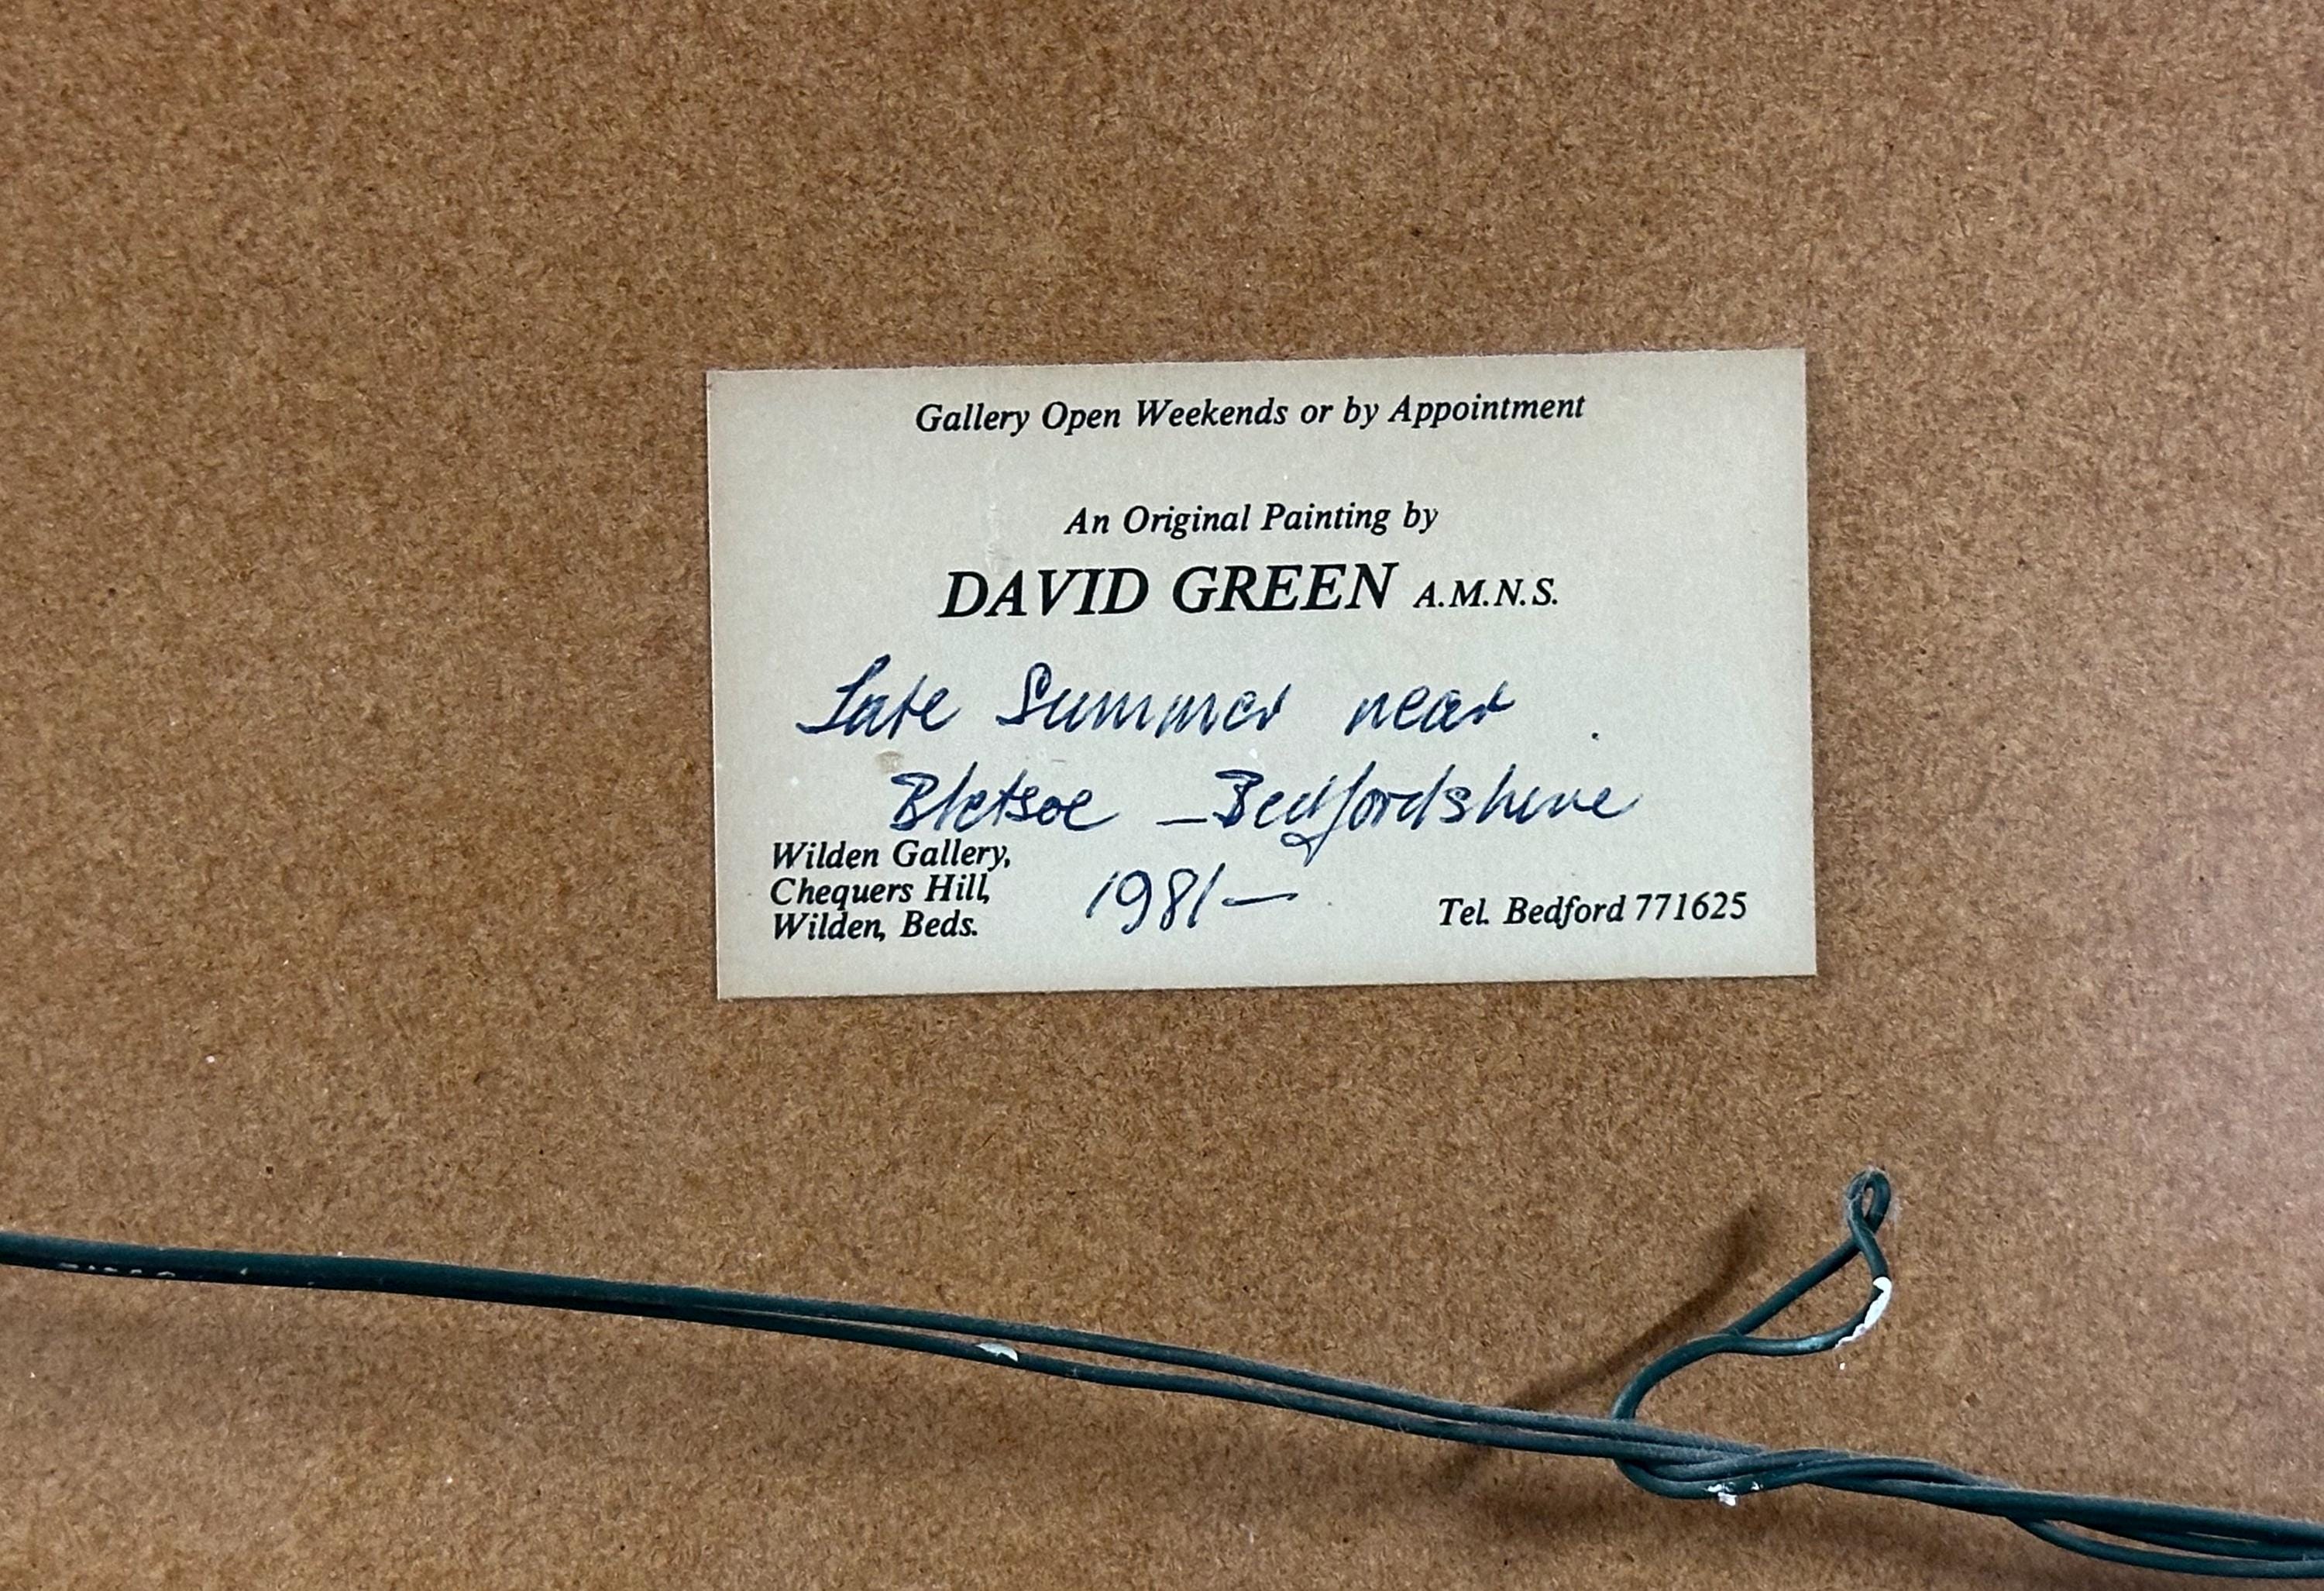 Gallery Open Weekends or by Appointment
An Original Painting by
DAVID GREEN A.M.N.S.
Late Summer near
Bletsoe – Bedfordshire
Wilden Gallery,
Chequers Hill,
Wilden, Beds.
1981 –
Tel. Bedford 771625